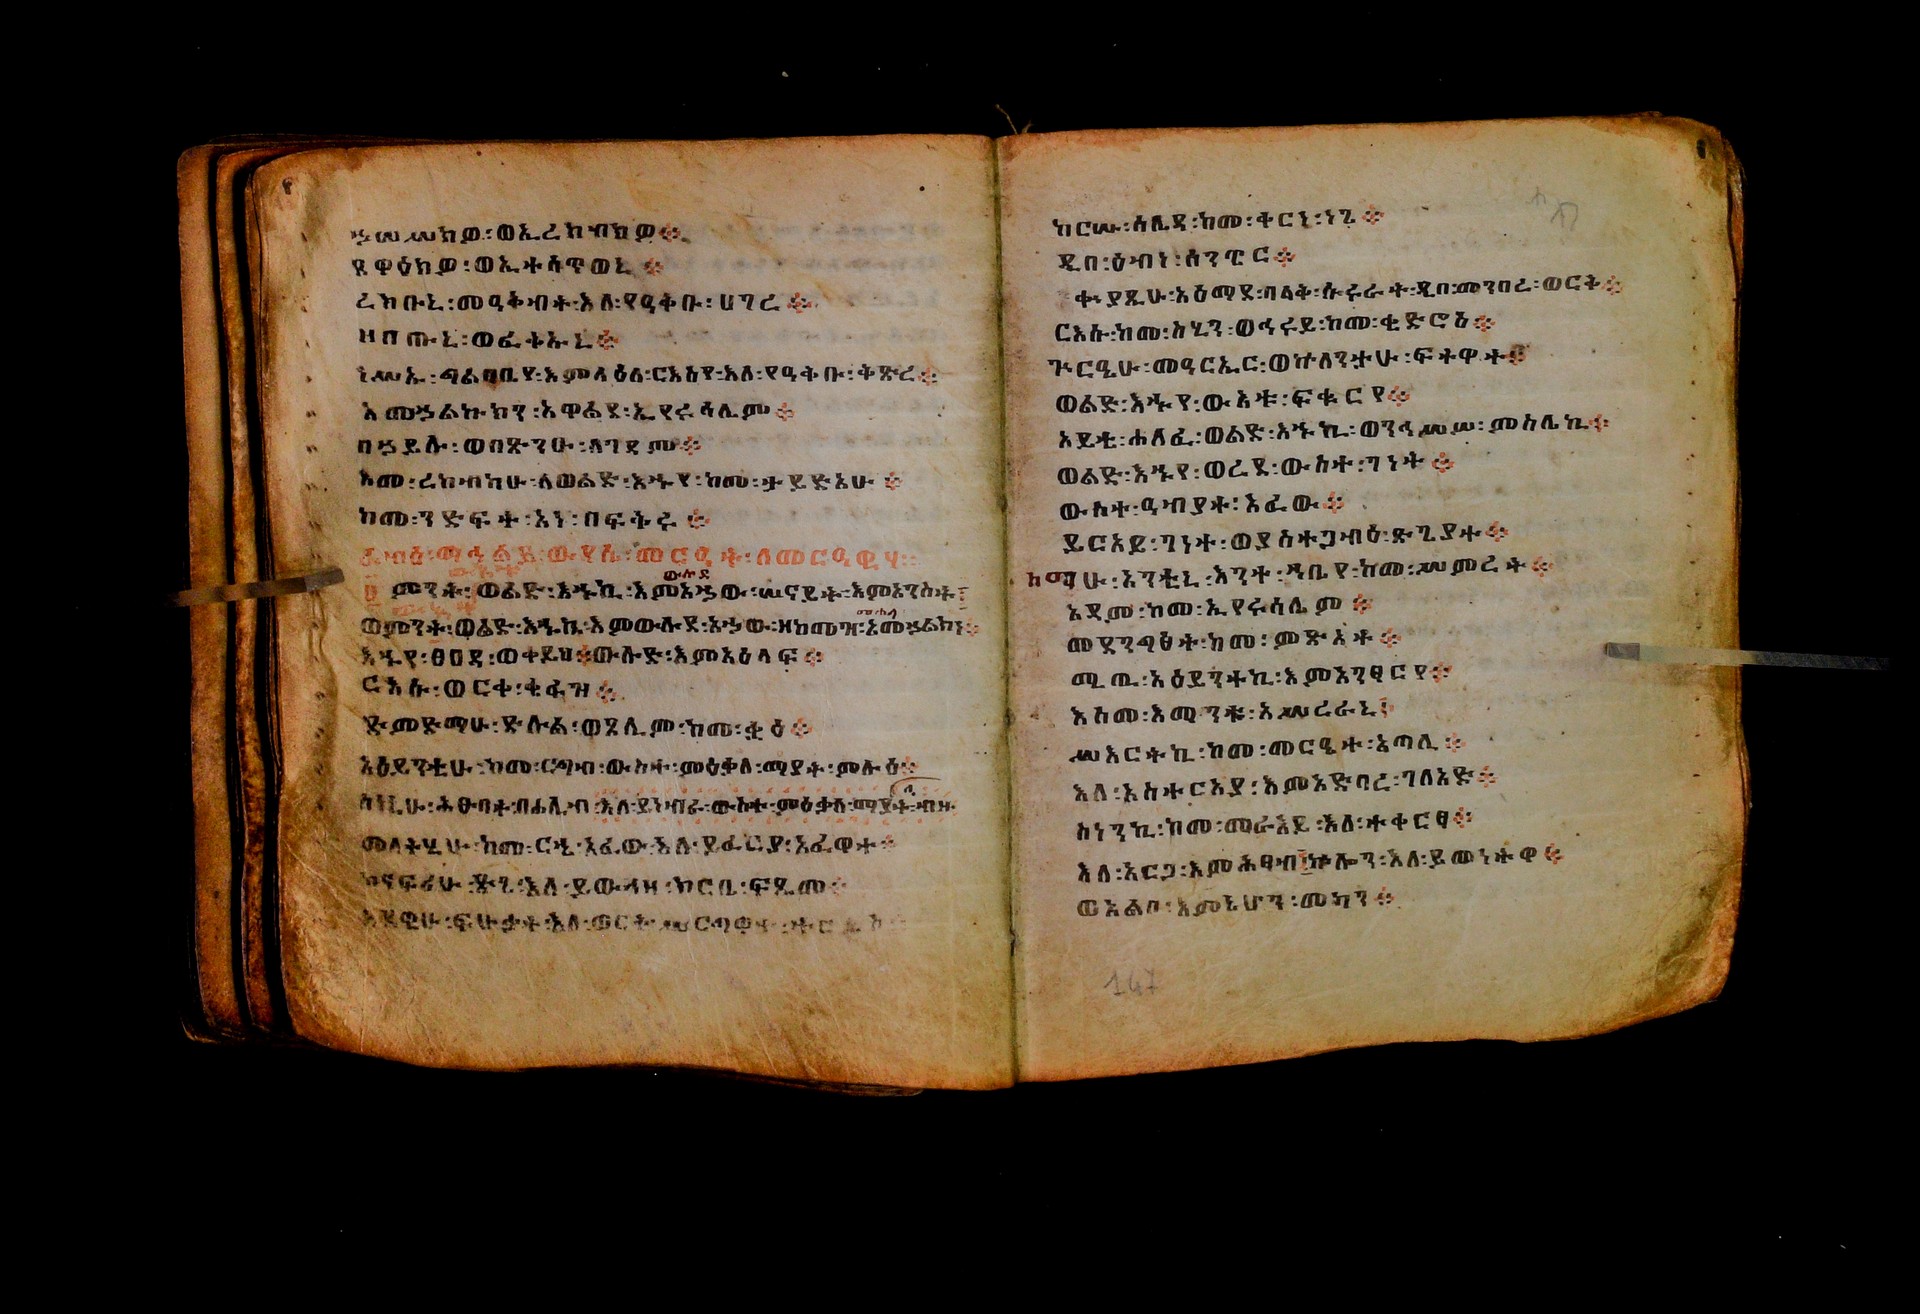 ኀሠሥክዎ፡ወኢረከብክዎ።
ጸዋዕክዎ፡ወኢተሰጥወኒ።
ረከቡኒ፡መዓቅብት፡እለ፡የዓቅቡ፡ሀገረ።
ዘበጡኒ፡ወፈቀኡኒ።
ነሥኡ፡ግልባቤየ፡እምላዕለ፡ርእስየ፡እለ፡የዓቅቡ፡ቅጽረ።
አመኀልኩክን፡አዋልደ፡ኢየሩሳሌም።
በኀይሉ፡ወበጽንዑ፡ለገዳም።
እመ፡ረከብክሁ፡ለወልድ፡እኁየ፡ከመ፡ትይድእዎ።
ከመ፡ንድፍት፡አነ፡በፍቅሩ።
ምንት፡ወልድ፡እኁኪ፡እምእኁው፡ሠናይት፡እምአንስት፡
ወምንት፡ወልድ፡እኁኪ፡እምውሉደ፡እኁው፡ዘከመዝ፡አመኀልክነ።
እኁየ፡ፀዐዳ፡ወቀይሕ።ውሉድ፡እምአዕላፍ።
ርእሱ፡ወርቀ፡ቄፋዝ።
ድምድማሁ፡ድሉል፡ወጸሊም፡ከመ፡ቋዕ።
አዕይንቲሁ፡ከመ፡ርግብ፡ውስተ፡ምዕቃለ፡ማያት፡ምሉዕ።
ስነኒሁ፡ሕፁባት፡በሐሊብ፡እለ፡ይነብራ፡ውስተ፡ምዕቃለ፡ማያት፡ብዙኅ
መላትሂሁ፡ከመ፡ርኂ፡አፈው፡እለ፡ይፈርያ፡አፈዋተ።
ከናፍሪሁ፡ጽጌ፡እለ፡ይውኅዛ፡ከርቤ፡ፍጹመ።
እደዊሁ፡ፍሁቃት፡እለ፡ወርቅ
ከርሡ፡ሰሌዳ፡ከመ፡ቀርነ፡ነጌ።
ዲበ፡ዕብነ፡ሰንፔር።
ቍያጺሁ፡አዕማደ፡ባላቅ፡ሱሩራት፡ዲበ፡መንበረ፡ወርቅ።
ርእሱ፡ከመ፡ስሂን፡ወኅሩይ፡ከመ፡ቄድሮስ።
ጕርዔሁ፡መዓርዒር፡ወኵለንታሁ፡ፍትዋት።
ወልድ፡እኁየ፡ውእቱ፡ፍቁርየ።
አይቴ፡ሐለፈ፡ወልድ፡እኁኪ፡ወንኅሥሥ፡ምስሌኪ።
ወልድ፡እኁየ፡ወረደ፡ውስተ፡ገነት።
ውስተ፡ዓብያት፡አፈው።
ይርአይ፡ገነት፡ወያስተጋብዕ፡ጽጌያተ።
ከማሁ፡አንቲኒ፡እንተ፡ኀቤየ፡ከመ፡ሥምረት።
አዳም፡ከመ፡ኢየሩሳሌም።
መደንግፅት፡ከመ፡ምጽአት።
ሚጢ፡አዕይንትኪ፡እምአንፃርየ።
እስመ፡እማንቱ፡አሥረራኒ፡
ሥእርትኪ፡ከመ፡መርዔተ፡አጣሊ።
እለ፡አስተርአያ፡እምአድባረ፡ገለአድ።
ስነንኪ፡ከመ፡መራእይ፡እለ፡ተቀርፃ።
እለ፡አርጋ፡እምሕፃብ፡ኵሎን፡እለ፡ይወነትዋ።
ወአልቦ፡እምኔሆን፡መካን።
147